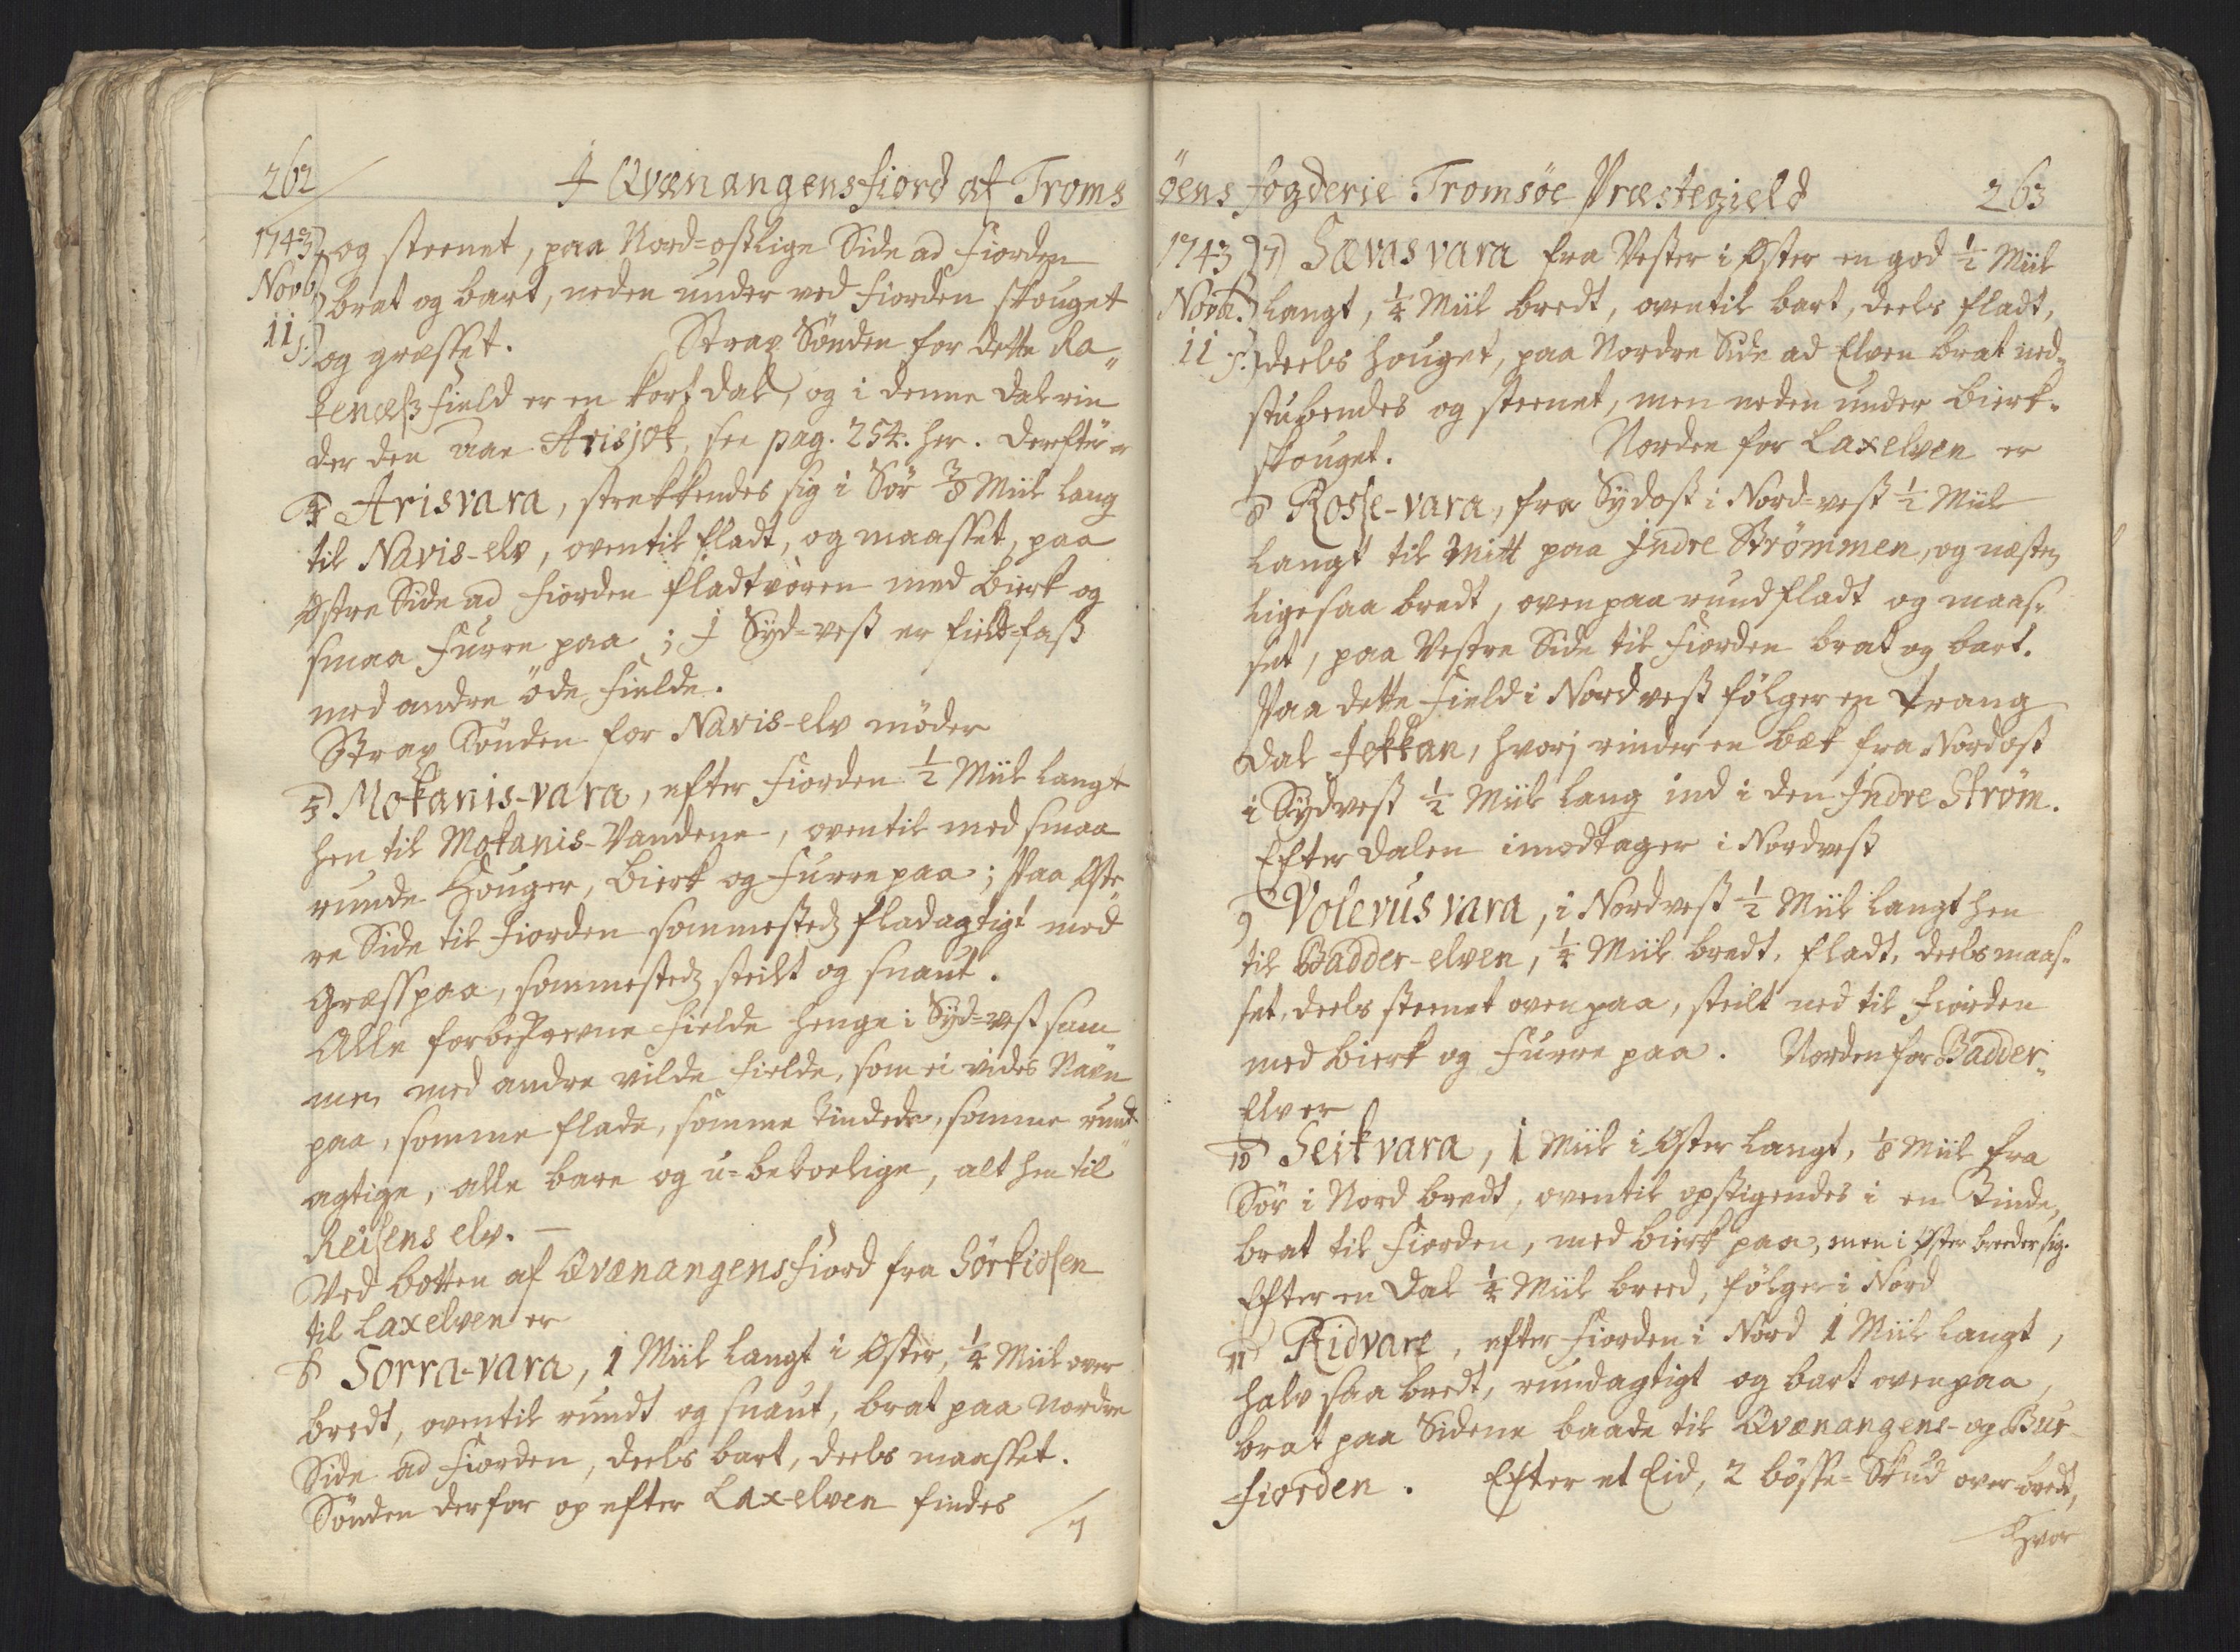 262
I Qvænangensfiord af Troms
1743 og steenet, paa Nord=ostlige Side ad Fiorden
Novb. brat og bart, neden under ved Fiorden skouget
11 s: og græsset. Strax Sønden for dette Ra„
kenæss field er en kort dal, og i denne dal rin
der den aae Arisjok, see pag. 254. her. Derefter er
4 Arisvara, strekkendes sig i Sör 3/8 Miil lang
til Navis-elv, oventil fladt, og maasset, paa
Østre Side ad Fiorden fladtvoren med Birk og
smaa Furre paa; I Syd=vest er field=fast
med andre öde Fielde.
Strax Sönden for Navis-elv möder
5 Mokanis-vara, efter Fiorden 1/2 Miil langt
hen til Mokanis-Vandene, oventil med smaa
runde Houger, Bierk og Furre paa; Paa Øst„
re Side til Fiorden sommestedz fladagtigt med
Græss paa, sommestedz steilt og snaut.
Alle forbeskrevne Fielde henge i Syd=vest sam
men med andre vilde Fielde, som ei vides Navn
paa, somme flade, somme Tindede, somme rund„
agtige, alle bare og u=beboelige, alt hen til
Reisens elv. —
Ved botten af Qvænangensfiord fra Sörkiosen
til Laxelven er
6 Sorra-vara, 1 Miil langt i Øster, 1/4 Miil over
bredt, oventil rundt og snaut, brat paa Nordre
Side ad Fiorden, deels bart, deels maasset.
Sönden derfor op efter Laxelven findes
7
öens Fogderie Tromsöe Præstegield
263
1743 7) Sævasvara fra Vester i Øster en god 1/2 Miil
Novb. langt, 1/4 Miil bredt, oventil bart, deels fladt,
11 s. deels houget, paa Nordre Side ad Elven brat ned„
stubendes og steenet, men neden under bierk„
skouget. Norden for Laxelven er
8 Rosse-vara, fra Sydost i Nord=vest 1/2 Miil
langt til Mitt paa Indre Strömmen, og næsten
ligesaa bredt, oven paa rundfladt og maas„
set, paa Vestre Side til Fiorden brat og bart.
Paa dette Field i Nordvest fölger en trang
Dal Jekkan, hvori rinder en bæk fra Nordost
i Sydvest 1/2 Miil lang ind i den Indre Ström.
Efter Dalen imodtager i Nordvest
9 Volerusvara, i Nordvest 1/2 Miil langt hen
til Badder-elven, 1/4 Miil bredt, fladt, deels maas„
set, deels steenet oven paa, steilt ned til Fiorden
med bierk og Furre paa. Norden for Badder„
Elv er
10 Seikvara, 1 Miil i Øster langt, 1/8 Miil fra
Sör i Nord bredt, oventil opstigendes i en Tinde,
brat til Fiorden, med bierk paa, men i Øster breeder sig.
Efter en Dal 1/4 Miil breed, fölger i Nord
11 Ridvare, efter Fiorden i Nord 1 Miil langt,
halv saa bredt, rundagtigt og bart oven paa,
brat paa Sidene baade til Qvænangens- og Bur-
fiorden. Efter et Eid, 2 bösse=Skud over bredt,
Hvor